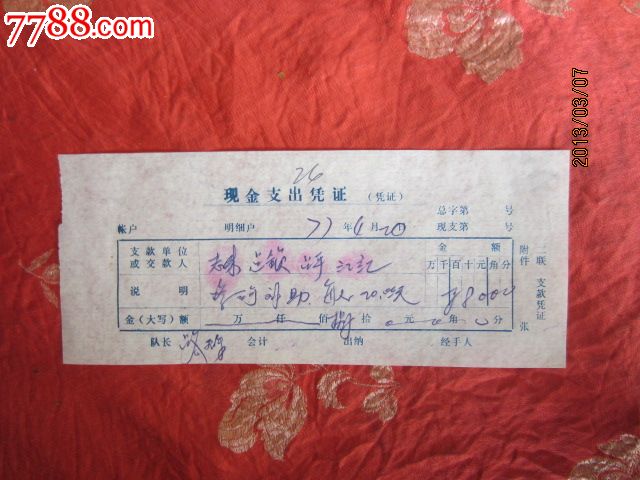 7788.com
2013/03/07
26
现金支出凭证 （凭证）
总字第 号
帐户 明细户 77年4月20日 现支第 号
支款单位
或交款人
金 额
万千百十元角分
说 明 补助 每人20.00元 ¥8000
金（大写）额 万 仟 佰 捌 拾 0 元 0 角 0 分
队长 会计 出纳 经手人
附件 张
二联 支款凭证